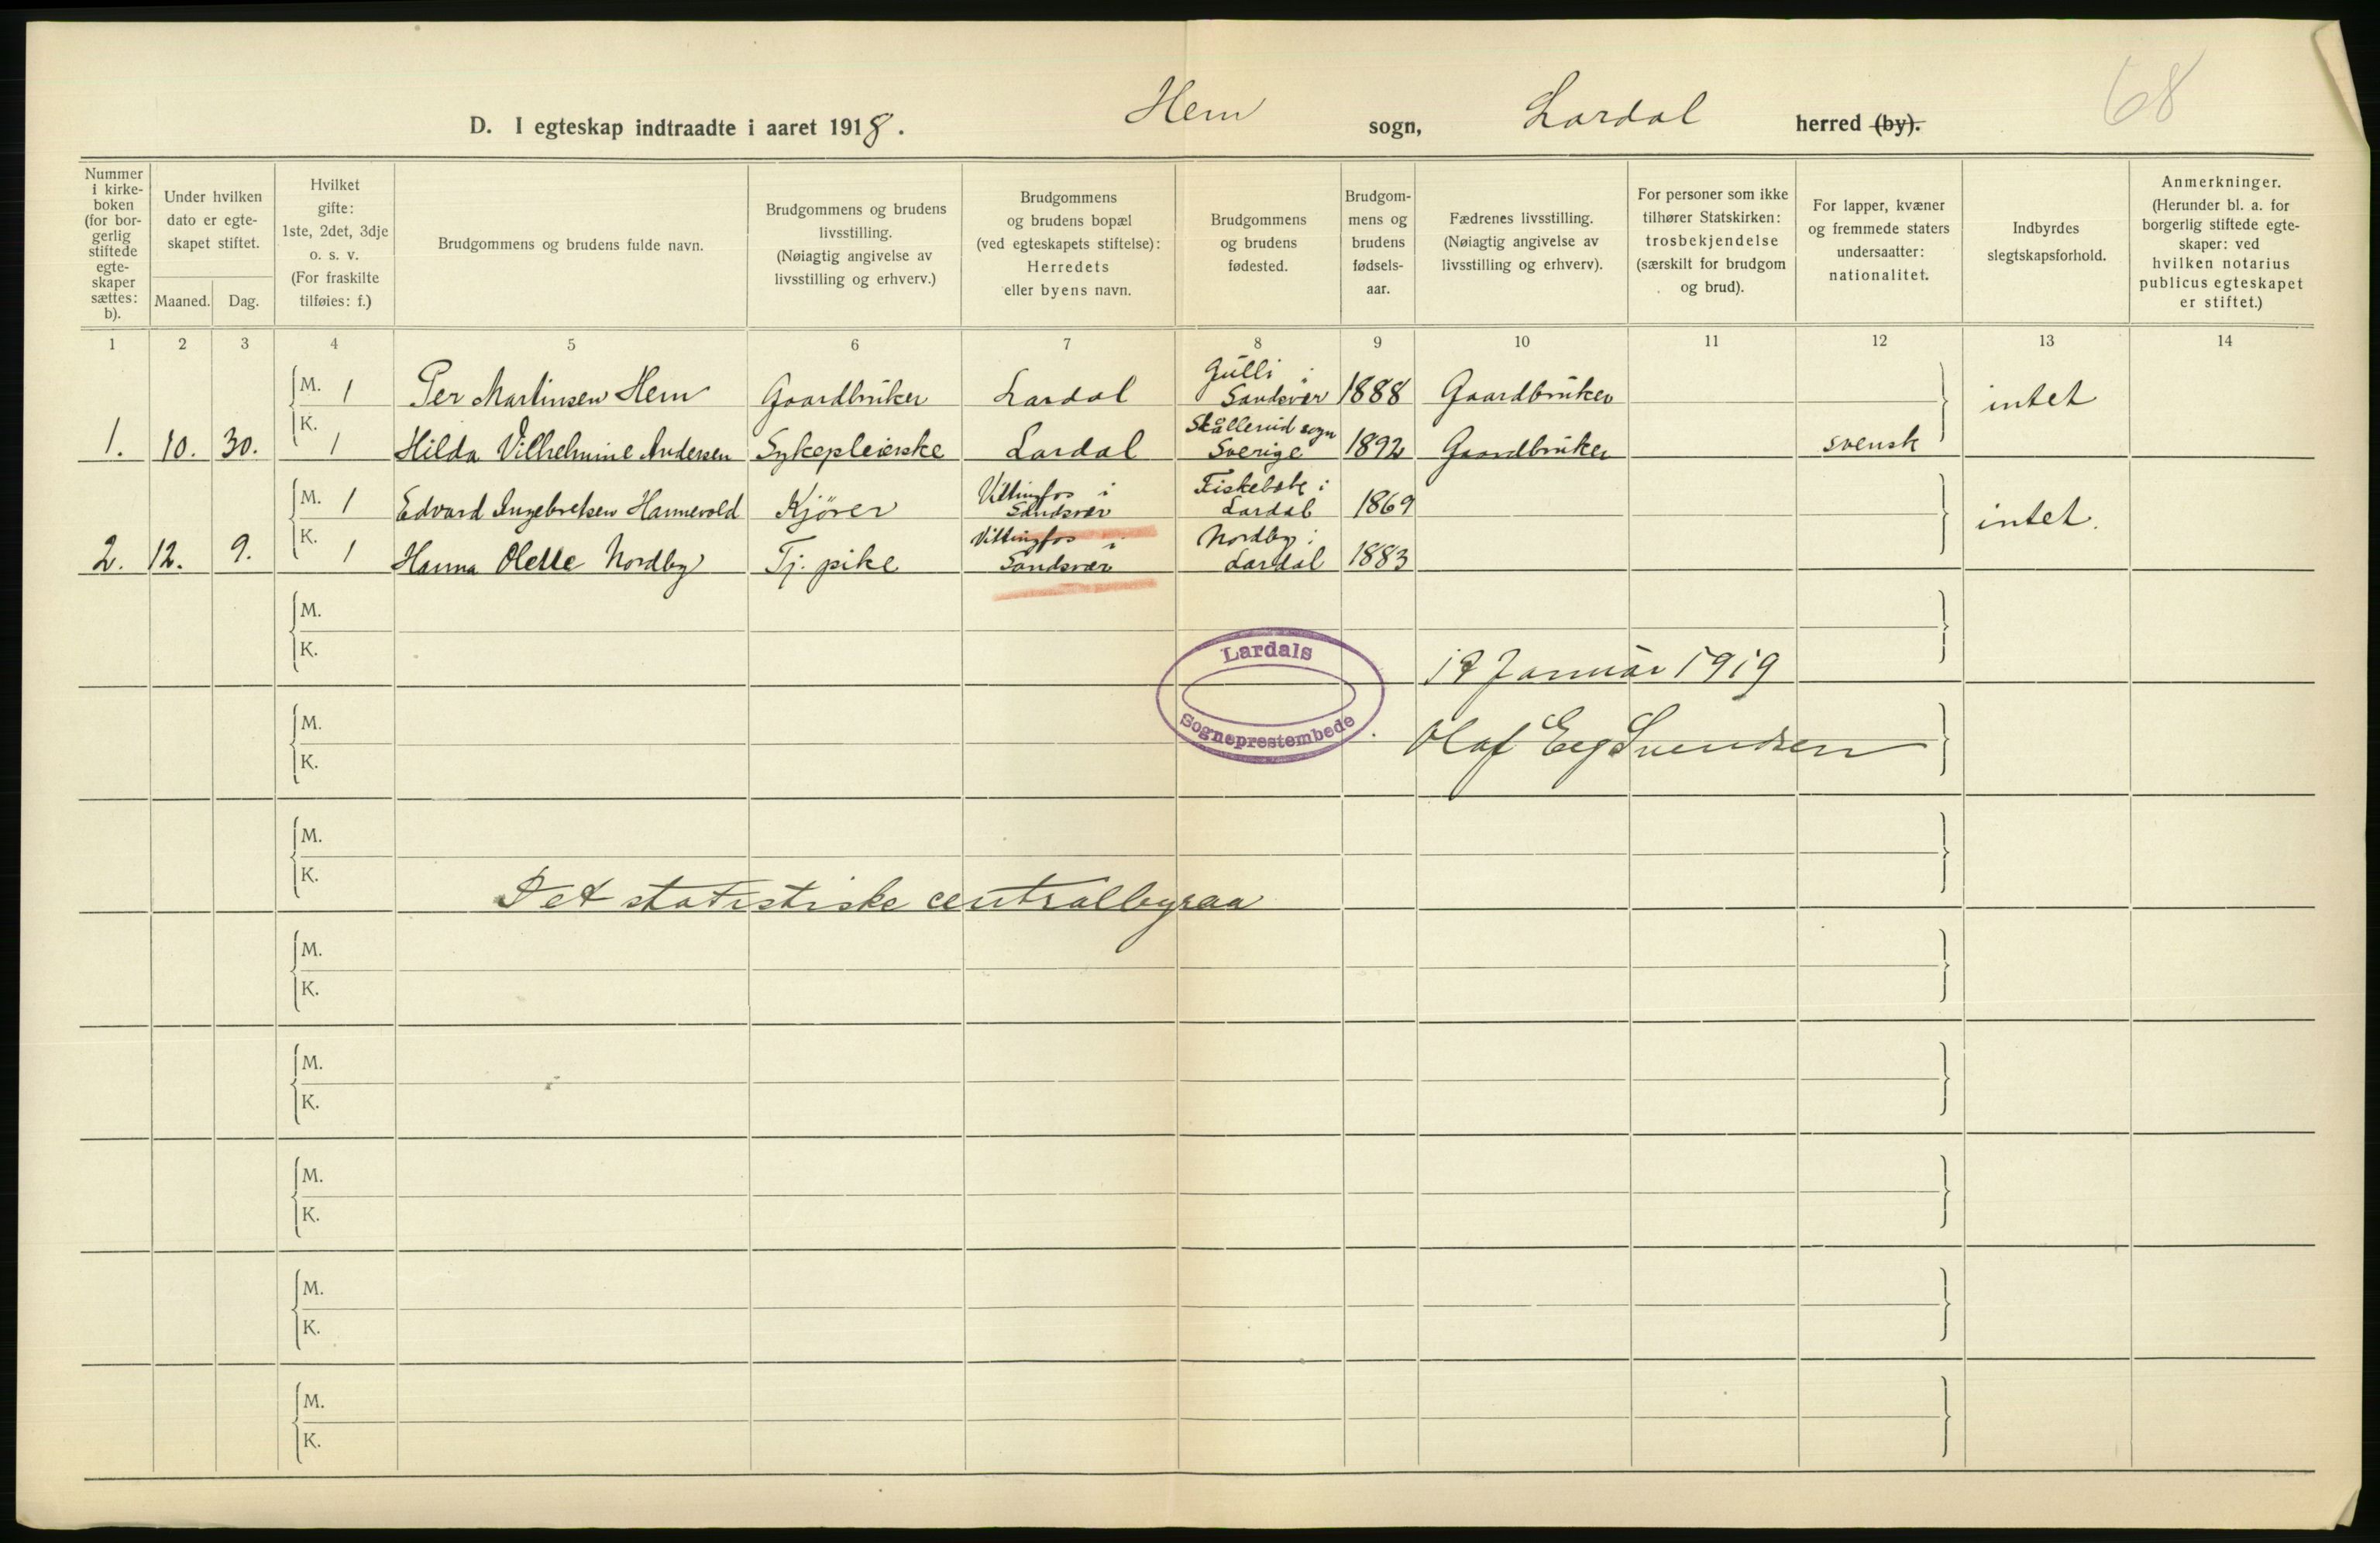 68
D. I egteskap indtraadte i aaret 1918. Hem sogn, Lardal herred (by).
Nummer
i kirke-
boken
(for bor-
gerlig
stiftede
egte-
skaper
sættes:
b).
Under hvilken
dato er egte-
skapet stiftet.
Maaned. Dag.
Hvilket
gifte:
1ste, 2det, 3dje
o. s. v.
(For fraskilte
tilføies: f.)
Brudgommens og brudens fulde navn.
Brudgommens og brudens
livsstilling.
(Nøiagtig angivelse av
livsstilling og erhverv.)
Brudgommens
og brudens bopæl
(ved egteskapets stiftelse):
Herredets
eller byens navn.
Brudgommens
og brudens
fødested.
Brudgom-
mens og
brudens
fødsels-
aar.
Fædrenes livsstilling.
(Nøiagtig angivelse av
livsstilling og erhverv).
For personer som ikke
tilhører Statskirken:
trosbekjendelse
(særskilt for brudgom
og brud).
For lapper, kvæner
og fremmede staters
undersaatter:
nationalitet.
Indbyrdes
slegtskapsforhold.
Anmerkninger.
(Herunder bl. a. for
borgerlig stiftede egte-
skaper: ved
hvilken notarius
publicus egteskapet
er stiftet.)
1 2 3 4 5 6 7 8 9 10 11 12 13 14
M. 1 Per Martinsen Hem Gaardbruker Lardal Gulli i Sandsvær 1888 Gaardbruker intet
1. 10. 30. K. 1 Hilda Vilhelmine Andersen Sykepleierske Lardal Skållerud sogn Sverige 1892 Gaardbruker svensk
M. 1 Edvard Ingebretsen Hannevold Kjører Vittingfos i Sandsvær Fiskebæk i Lardal 1869 intet.
2. 12. 9. K. 1 Hanna Olette Nordby Tj. pike Vittingfos i Sandsvær Nordby i Lardal 1883
M.
K.
Lardals
Sogneprestembede
Januar 1919
M.
Olaf Eeg Svendsen
K.
M.
K.
Det statistiske centralbyraa
M.
K.
M.
K.
M.
K.
M.
K.
M.
K.